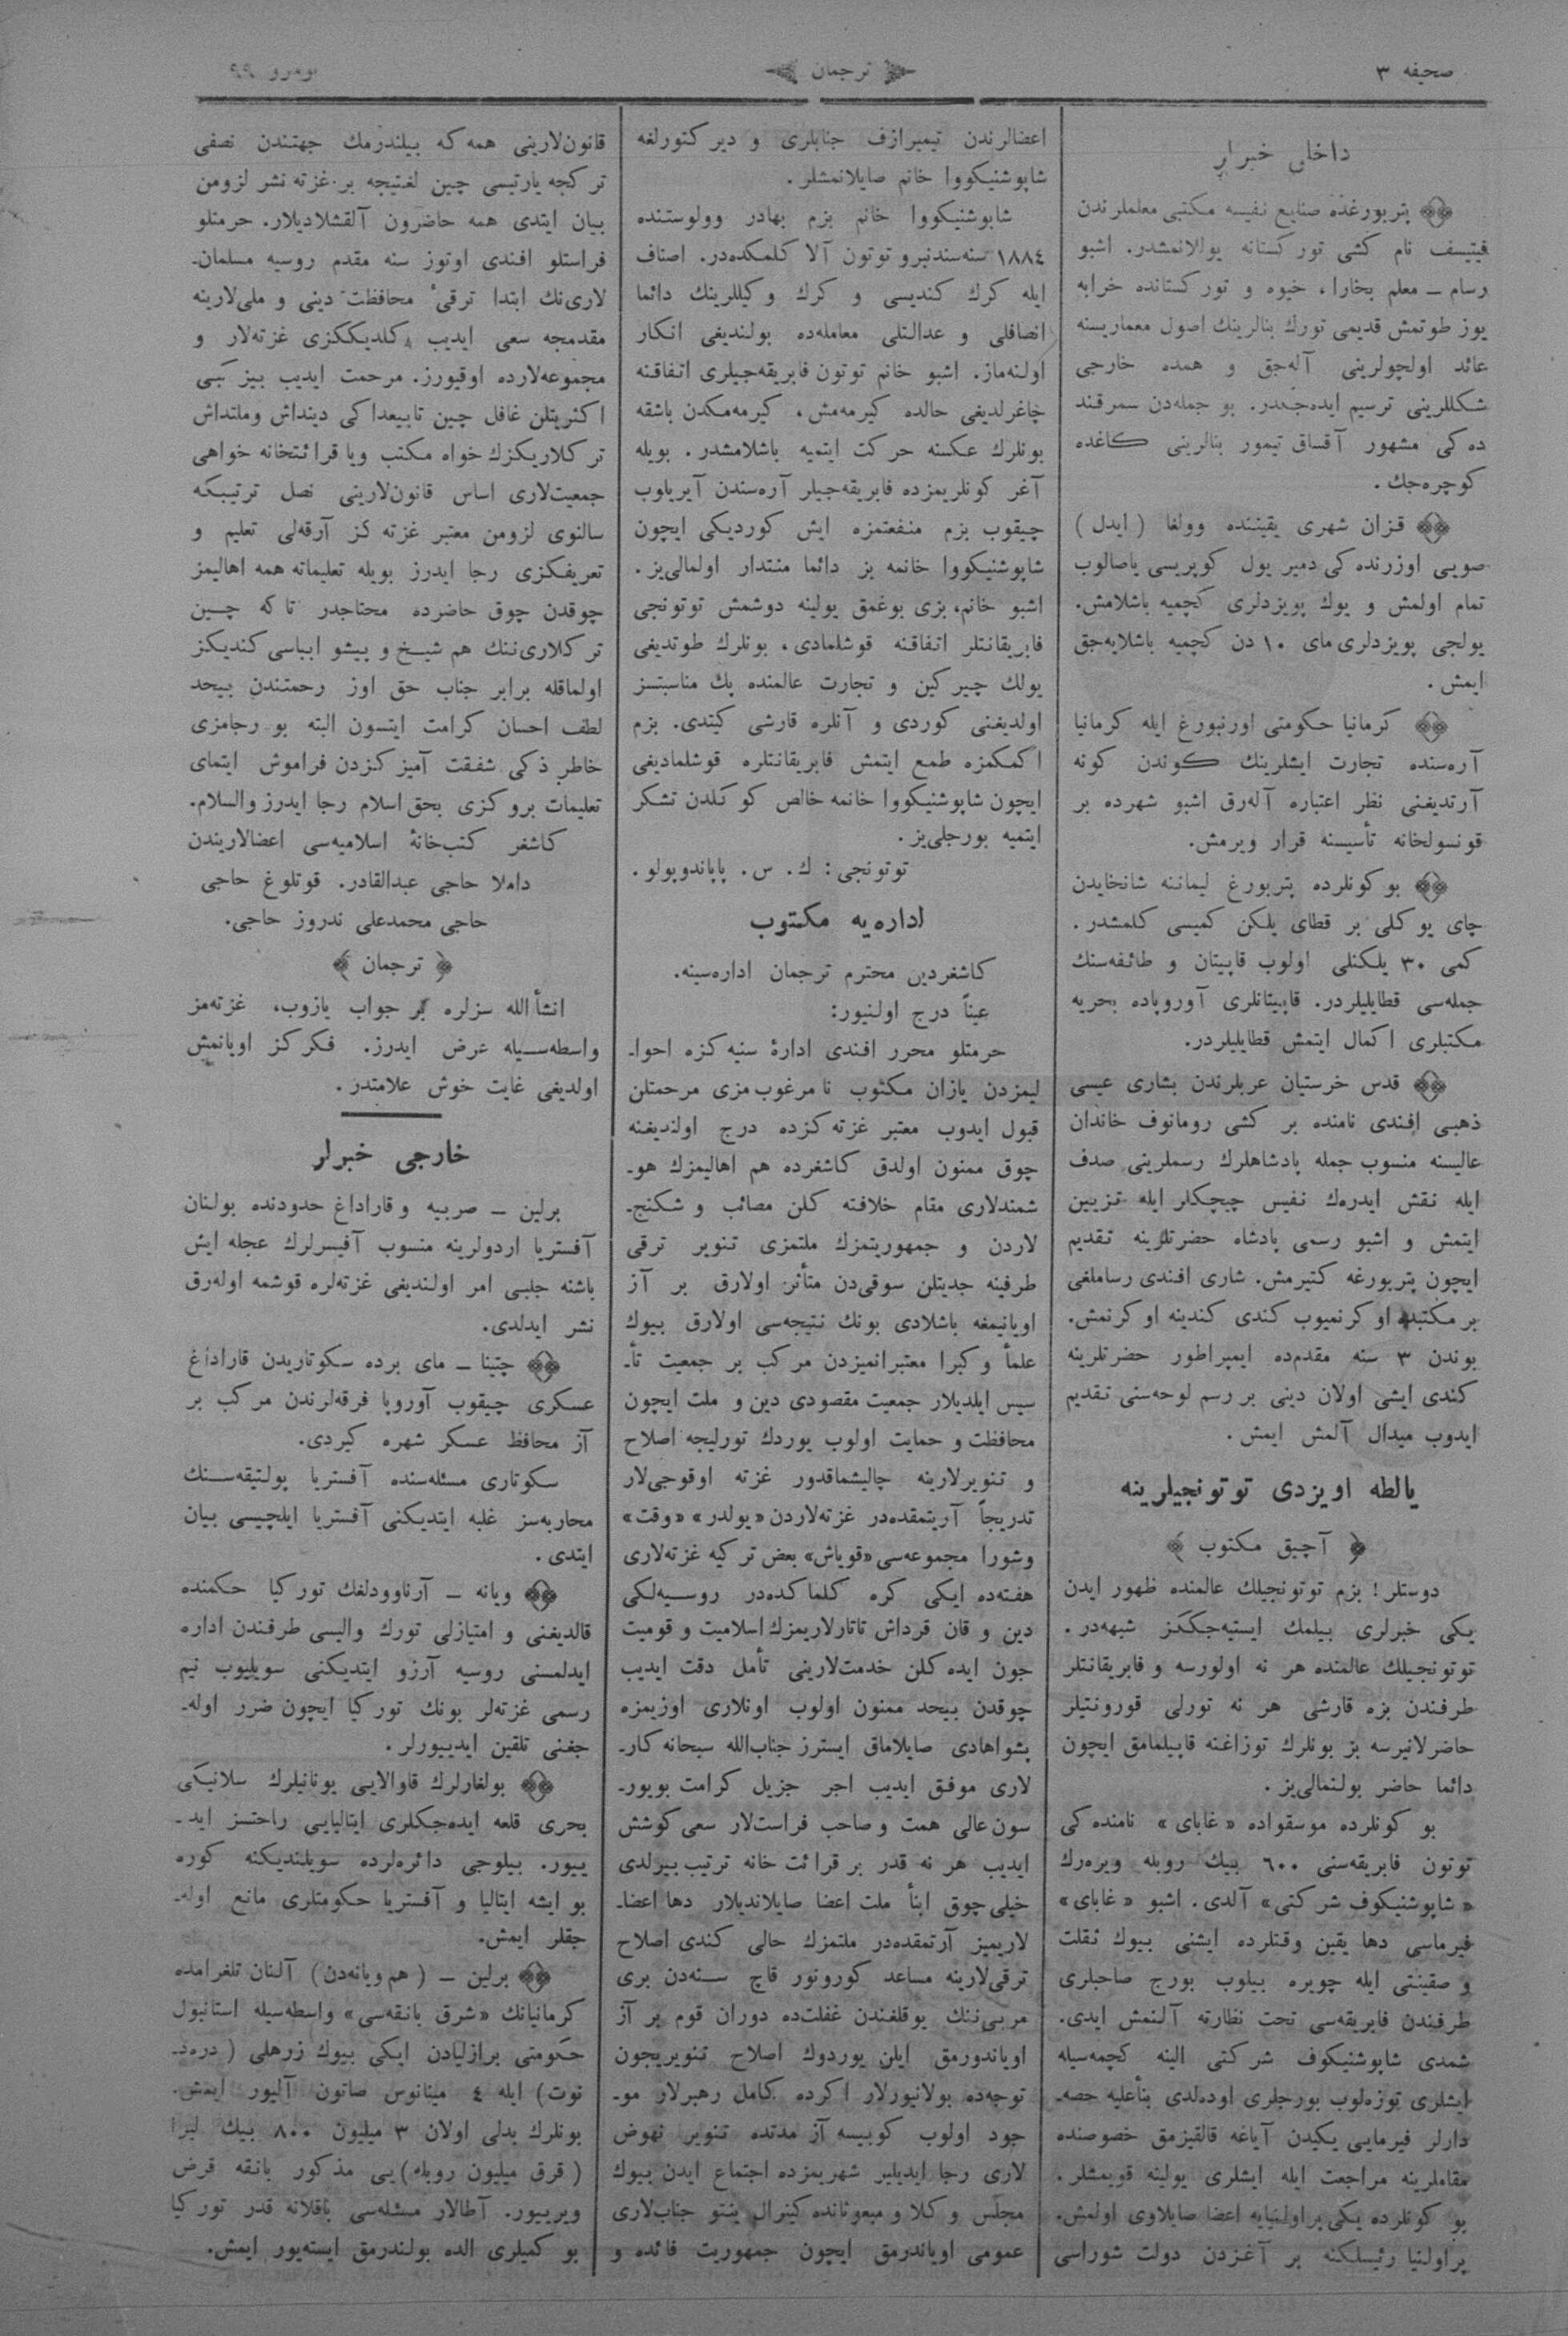 صحيفه ٣
ترجمان
نومرو ٩٩
داخلی خبرلر
پتربورغده صنايع نفيسه مكتبی معلملرندن
فيتيسف نام كشی توركستانه يوللانمشدر. اشبو
رسام — معلم بخارا، خيوه و توركستانده خرابه
يوز طوتمش قديمی تورك بنالرينك اصول معماريسنه
عائد اولچولرينی آلەجق و همده خارجی
شكللرينی ترسيم ايدەجكدر. بو جملەدن سمرقند
دەكی مشهور آقساق تيمور بنالرينی كاغده
كوچرەجك.
قزان شهری يقيننده وولغا (ايدل)
صويی اوزرندەكی دمير يول كوپريسی ياصالوب
تمام اولمش و يوك پويزدلری كچميه باشلامش.
يولجی پويزدلری مای ١٠ دن كچميه باشلايەجق
ايمش.
كرمانيا حكومتی اورنبورغ ايله كرمانيا
آرەسنده تجارت ايشلرينك كوندن كونه
آرتديغنی نظر اعتباره آلەرق اشبو شهرده بر
قونسولخانه تأسيسنه قرار ويرمش.
بو كونلرده پتربورغ ليماننه شانخايدن
چای يوكلی بر قطای يلكن كميسی كلمشدر.
كمی ٣٠ يلكنلی اولوب قاپيتان و طائفەسنك
جملەسی قطايليلردر. قاپيتانلری آوروپاده بحريه
مكتبلری اكمال ايتمش قطايليلردر.
قدس خرستيان عربلرندن بشاری عيسی
ذهبی افندی نامنده بر كشی رومانوف خاندان
عاليسنه منسوب جمله پادشاهلرك رسملرينی صدف
ايله نقش ايدرەك نفيس چيچكلر ايله تزيين
ايتمش و اشبو رسمی پادشاه حضرتلرينه تقديم
ايچون پتربورغه كتيرمش. شاری افندی رساملغی
بر مكتبده اوكرنميوب كندی كندينه اوكرنمش.
بوندن ٣ سنه مقدمده ايمپراطور حضرتلرينه
كندی ايشی اولان دينی بر رسم لوحەسنی تقديم
ايدوب ميدال آلمش ايمش.
يالطه اويزدی توتونجيلرينه
آچيق مكتوب
دوستلر! بزم توتونجيلك عالمنده ظهور ايدن
يكی خبرلری بيلمك ايستيەجككز شبهەدر.
توتونجيلك عالمنده هر نه اولورسه و فابريقانتلر
طرفندن بزه قارشی هر نه تورلی قورونتيلر
حاضرلانيرسه بز بونلرك توزاغنه قاپيلمامق ايچون
دائما حاضر بولنمالی‌يز.
بو كونلرده موسقواده «غابای» نامندەكی
توتون فابريقەسنی ٦٠٠ بيك روبله ويرەرك
«شاپوشنيكوف شركتی» آلدی. اشبو «غابای»
فيرماسی دها يقين وقتلرده ايشنی بيوك ثقلت
و صقينتی ايله چويره بيلوب بورج صاحبلری
طرفندن فابريقەسی تحت نظارته آلنمش ايدی.
شمدی شاپوشنيكوف شركتی الينه كچمەسيله
ايشلری توزەلوب بورجلری اودەلدی بنأعليه حصه‌ـ
دارلر فيرمايی يكيدن آياغه قالقيزمق خصوصنده
مقاملرينه مراجعت ايله ايشلری يولينه قويمشلر.
بو كونلرده يكی پراولنيايه اعضا صايلاوی اولمش.
پراولنيا رئيسلكنه بر آغزدن دولت شوراسی
اعضالرندن تيميرازف جنابلری و ديركتورلغه
شاپوشنيكووا خانم صايلانمشلر.
شاپوشنيكووا خانم بزم بهادر وولوستنده
١٨٨٤ سنەسندنبرو توتون آلا كلمكدەدر. اصناف
ايله كرك كنديسی و كرك وكيللرينك دائما
انصافلی و عدالتلی معاملەده بولنديغی انكار
اولنەماز. اشبو خانم توتون فابريقەجيلری اتفاقنه
چاغرلديغی حالده كيرمەمش، كيرمەمكدن باشقه
بونلرك عكسنه حركت ايتميه باشلامشدر. بويله
آغر كونلريمزده فابريقەجيلر آرەسندن آيريلوب
چيقوب بزم منفعتمزه ايش كورديكی ايچون
شاپوشنيكووا خانمه بز دائما منتدار اولمالی‌يز.
اشبو خانم، بزی بوغمق يولينه دوشمش توتونجی
فابريقانتلر اتفاقنه قوشلمادی، بونلرك طوتديغی
يولك چيركين و تجارت عالمنده پك مناسبتسز
اولديغنی كوردی و آنلره قارشی كيتدی. بزم
اكمكمزه طمع ايتمش فابريقانتلره قوشلماديغی
ايچون شاپوشنيكووا خانمه خالص كوكلدن تشكر
ايتميه بورجلی‌يز.
توتونجی: ك. س. پاپاندوپولو.
ادارەيه مكتوب
كاشغردين محترم ترجمان ادارەسينه.
عيناً درج اولنيور:
حرمتلو محرر افندی ادارۀ سنيەكزه احواـ
ليمزدن يازان مكتوب نامرغوب‌مزی مرحمتلن
قبول ايدوب معتبر غزتەكزده درج اولنديغنه
چوق ممنون اولدق كاشغرده هم اهاليمزك هوـ
شمندلاری مقام خلافته كلن مصائب و شكنج‌ـ
لاردن و جمهوريتمزك ملتمزی تنوير ترقی
طرفينه جديتلن سوقی‌دن متأثر اولارق بر آز
اويانيمغه باشلادی بونك نتيجەسی اولارق بيوك
علمأ و كبرا معتبرانميزدن مركب بر جمعيت تأـ
سيس ايلديلار جمعيت مقصودی دين و ملت ايچون
محافظت و حمايت اولوب يوردك تورليجه اصلاح
و تنويرلارينه چاليشماقدور غزته اوقوجی‌لار
تدريجاً آريتمقدەدر غزتەلاردن «يولدز» «وقت»
وشورا مجموعەسی «قوياش» بعض تركيه غزتەلاری
هفتەده ايكی كره كلماكدەدر روسيەلكی
دين و قان قرداش تاتارلاريمزك اسلاميت و قوميت
جون ايدەكلن خدمت‌لارينی تأمل دقت ايديب
چوقدن بيحد ممنون اولوب اونلاری اوزيمزه
پشواهادی صايلاماق ايسترز جناب‌الله سبحانه كارـ
لاری موفق ايديب اجر جزيل كرامت بويورـ
سون عالی همت و صاحب فراست‌لار سعی كوشش
ايديب هر نه قدر بر قرائت خانه ترتيب بيرلدی
خيلی چوق ابنأ ملت اعضا صايلانديلار دها اعضاـ
لاريميز آرتمقدەدر ملتمزك حالی كندی اصلاح
ترقی‌لارينه مساعد كورونور قاچ سنەدن بری
مربی‌ننك يوقلغندن غفلت‌ده دوران قوم بر آز
اوياندورمق ايلن يوردوك اصلاح تنويريچون
توجەده بولانيورلار اكرده كامل رهبرلار موـ
جود اولوب كوبيسه آز مدتده تنوير نهوض
لاری رجا ايديلير شهريمزده اجتماع ايدن بيوك
مجلس وكلا و مبعوثانده كينرال ينتو جناب‌لاری
عمومی اوياندرمق ايچون جمهوريت فائده و
قانون‌لارينی همەكه بيلندرمك جهتندن نصفی
تركجه يارتيسی چين لغتيجه بر غزته نشر لزومن
بيان ايتدی همه حاضرون آلقشلاديلار. حرمتلو
فراستلو افندی اوتوز سنه مقدم روسيه مسلمان‌ـ
لاری‌نك ابتدا ترقیٔ محافظت دينی و ملی‌لارينه
مقدمجه سعی ايديب كلديككزی غزتەلار و
مجموعەلارده اوقيورز. مرحمت ايديب بيز كبی
اكثريتلن غافل چين تابيعداكی دينداش وملتداش
تركلاريكزك خواه مكتب ويا قرائتخانه خواهی
جمعيت‌لاری اساس قانون‌لارينی نصل ترتيبكه
سالنوی لزومن معتبر غزتەكز آرقەلی تعليم و
تعريفكزی رجا ايدرز بويله تعليماته همه اهاليمز
چوقدن چوق حاضرده محتاجدر تا كه چين
تركلاری‌ننك هم شيخ و پيشو ابباسی كنديكز
اولماقله برابر جناب حق اوز رحمتندن بيحد
لطف احسان كرامت ايتسون البته بو رجامزی
خاطر ذكی شفقت آميزكزدن فراموش ايتمای
تعليمات بروكزی بحق اسلام رجا ايدرز والسلام.
كاشغر كتب‌خانۀ اسلاميەسی اعضالاريندن
داملا حاجی عبدالقادر. قوتلوغ حاجی
حاجی محمدعلی ندروز حاجی.
ترجمان
انشأالله سزلره بر جواب يازوب، غزتەمز
واسطەسيله عرض ايدرز. فكركز اويانمش
اولديغی غايت خوش علامتدر.
خارجی خبرلر
برلين — صربيه و قاراداغ حدودنده بولنان
آفستريا اردولرينه منسوب آفيسرلرك عجله ايش
باشنه جلبی امر اولنديغی غزتەلره قوشمه اولەرق
نشر ايدلدی.
چتينا — مای برده سكوتاريدن قاراداغ
عسكری چيقوب آوروپا فرقەلرندن مركب بر
آز محافظ عسكر شهره كيردی.
سكوتاری مسئلەسنده آفستريا پولتيقەسنك
محاربەسز غلبه ايتديكنی آفستريا ايلچيسی بيان
ايتدی.
ويانه — آرناوودلغك توركيا حكمنده
قالديغنی و امتيازلی تورك واليسی طرفندن اداره
ايدلمسنی روسيه آرزو ايتديكنی سويليوب نيم
رسمی غزتەلر بونك توركيا ايچون ضرر اولەـ
جغنی تلقين ايدييورلر.
بولغارلرك قاوالايی يونانيلرك سلانيكی
بحری قلعه ايدەجكلری ايتاليايی راحتسز ايدـ
ييور. بيلوجی دائرەلرده سويلنديكنه كوره
بو ايشه ايتاليا و آفستريا حكومتلری مانع اولەـ
جقلر ايمش.
برلين — (هم ويانەدن) آلنان تلغرامده
كرمانيانك «شرق بانقەسی» واسطەسيله استانبول
حكومتی برازليادن ايكی بيوك زرهلی (دردـ
نوت) ايله ٤ مينانوس صاتون آليور ايمش.
بونلرك بدلی اولان ٣ ميليون ٨٠٠ بيك ليرا
(قرق ميليون روبله)يی مذكور بانقه قرض
ويرييور. آطالار مسئلەسی ياقلانه قدر توركيا
بو كميلری الده بولندرمق ايستەيور ايمش.